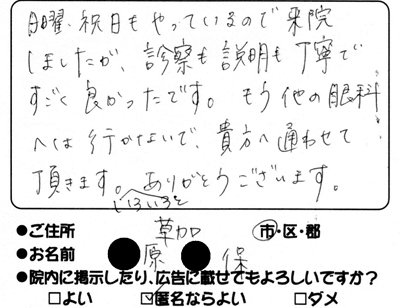 日曜、祝日もやっているので来院
しましたが、診察も説明も丁寧で
すごく良かったです。もう他の眼科
へは行かないで、貴方へ通わせて
頂きます。ありがとうございます。
いろいろと
●ご住所 草加 市・区・郡
●お名前 原 保
●院内に掲示したり、広告に載せてもよろしいですか？
□よい ☑匿名ならよい □ダメ